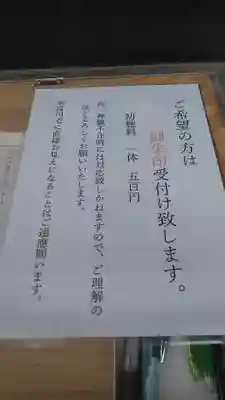 ご希望の方は
御朱印受付け致します。
初穂料 一体 五百円
尚、神職不在時には対応致しかねますので、ご理解の
ほどよろしくお願いいたします。
直接お伺えになることはご遠慮願います。